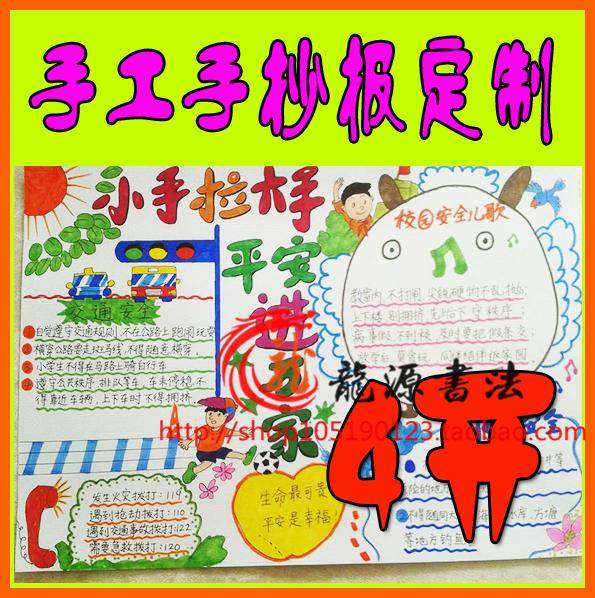 手工手抄报定制
小手拉大手
平安
进
家
交通安全
①自觉遵守交通规则,不在公路上跑闹玩耍
②横穿公路要走斑马线,不得随意横穿.
③小学生不得在马路上骑自行车.
④遵守公共秩序,排队等车,车未停稳不
得靠近车辆,上下车时不得拥挤.
校园安全儿歌
教室内,不打闹,尖锐硬物不乱抛;
上下楼,别拥挤,先后下守秩序;
病事假,不到校,及时要把假条交;
放学后,莫贪玩,同伴结伴返家园
龍源書法
http://shop105190123.taobao.com
4开
发生火灾拨打:119
遇到抢劫拨打:110
遇到交通事故拨打:122
需要急救拨打:120
生命最可贵
平安是幸福!
井等
险的地方
水库,方塘
等地方钓鱼